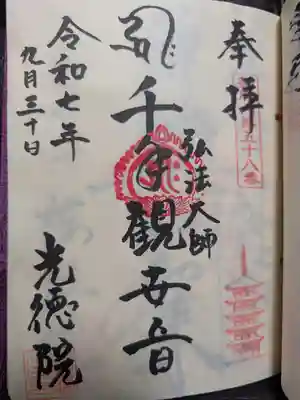 奉拝
五十八番
じ
千手観世音
弘法大師
令和七年
九月三十日
光徳院